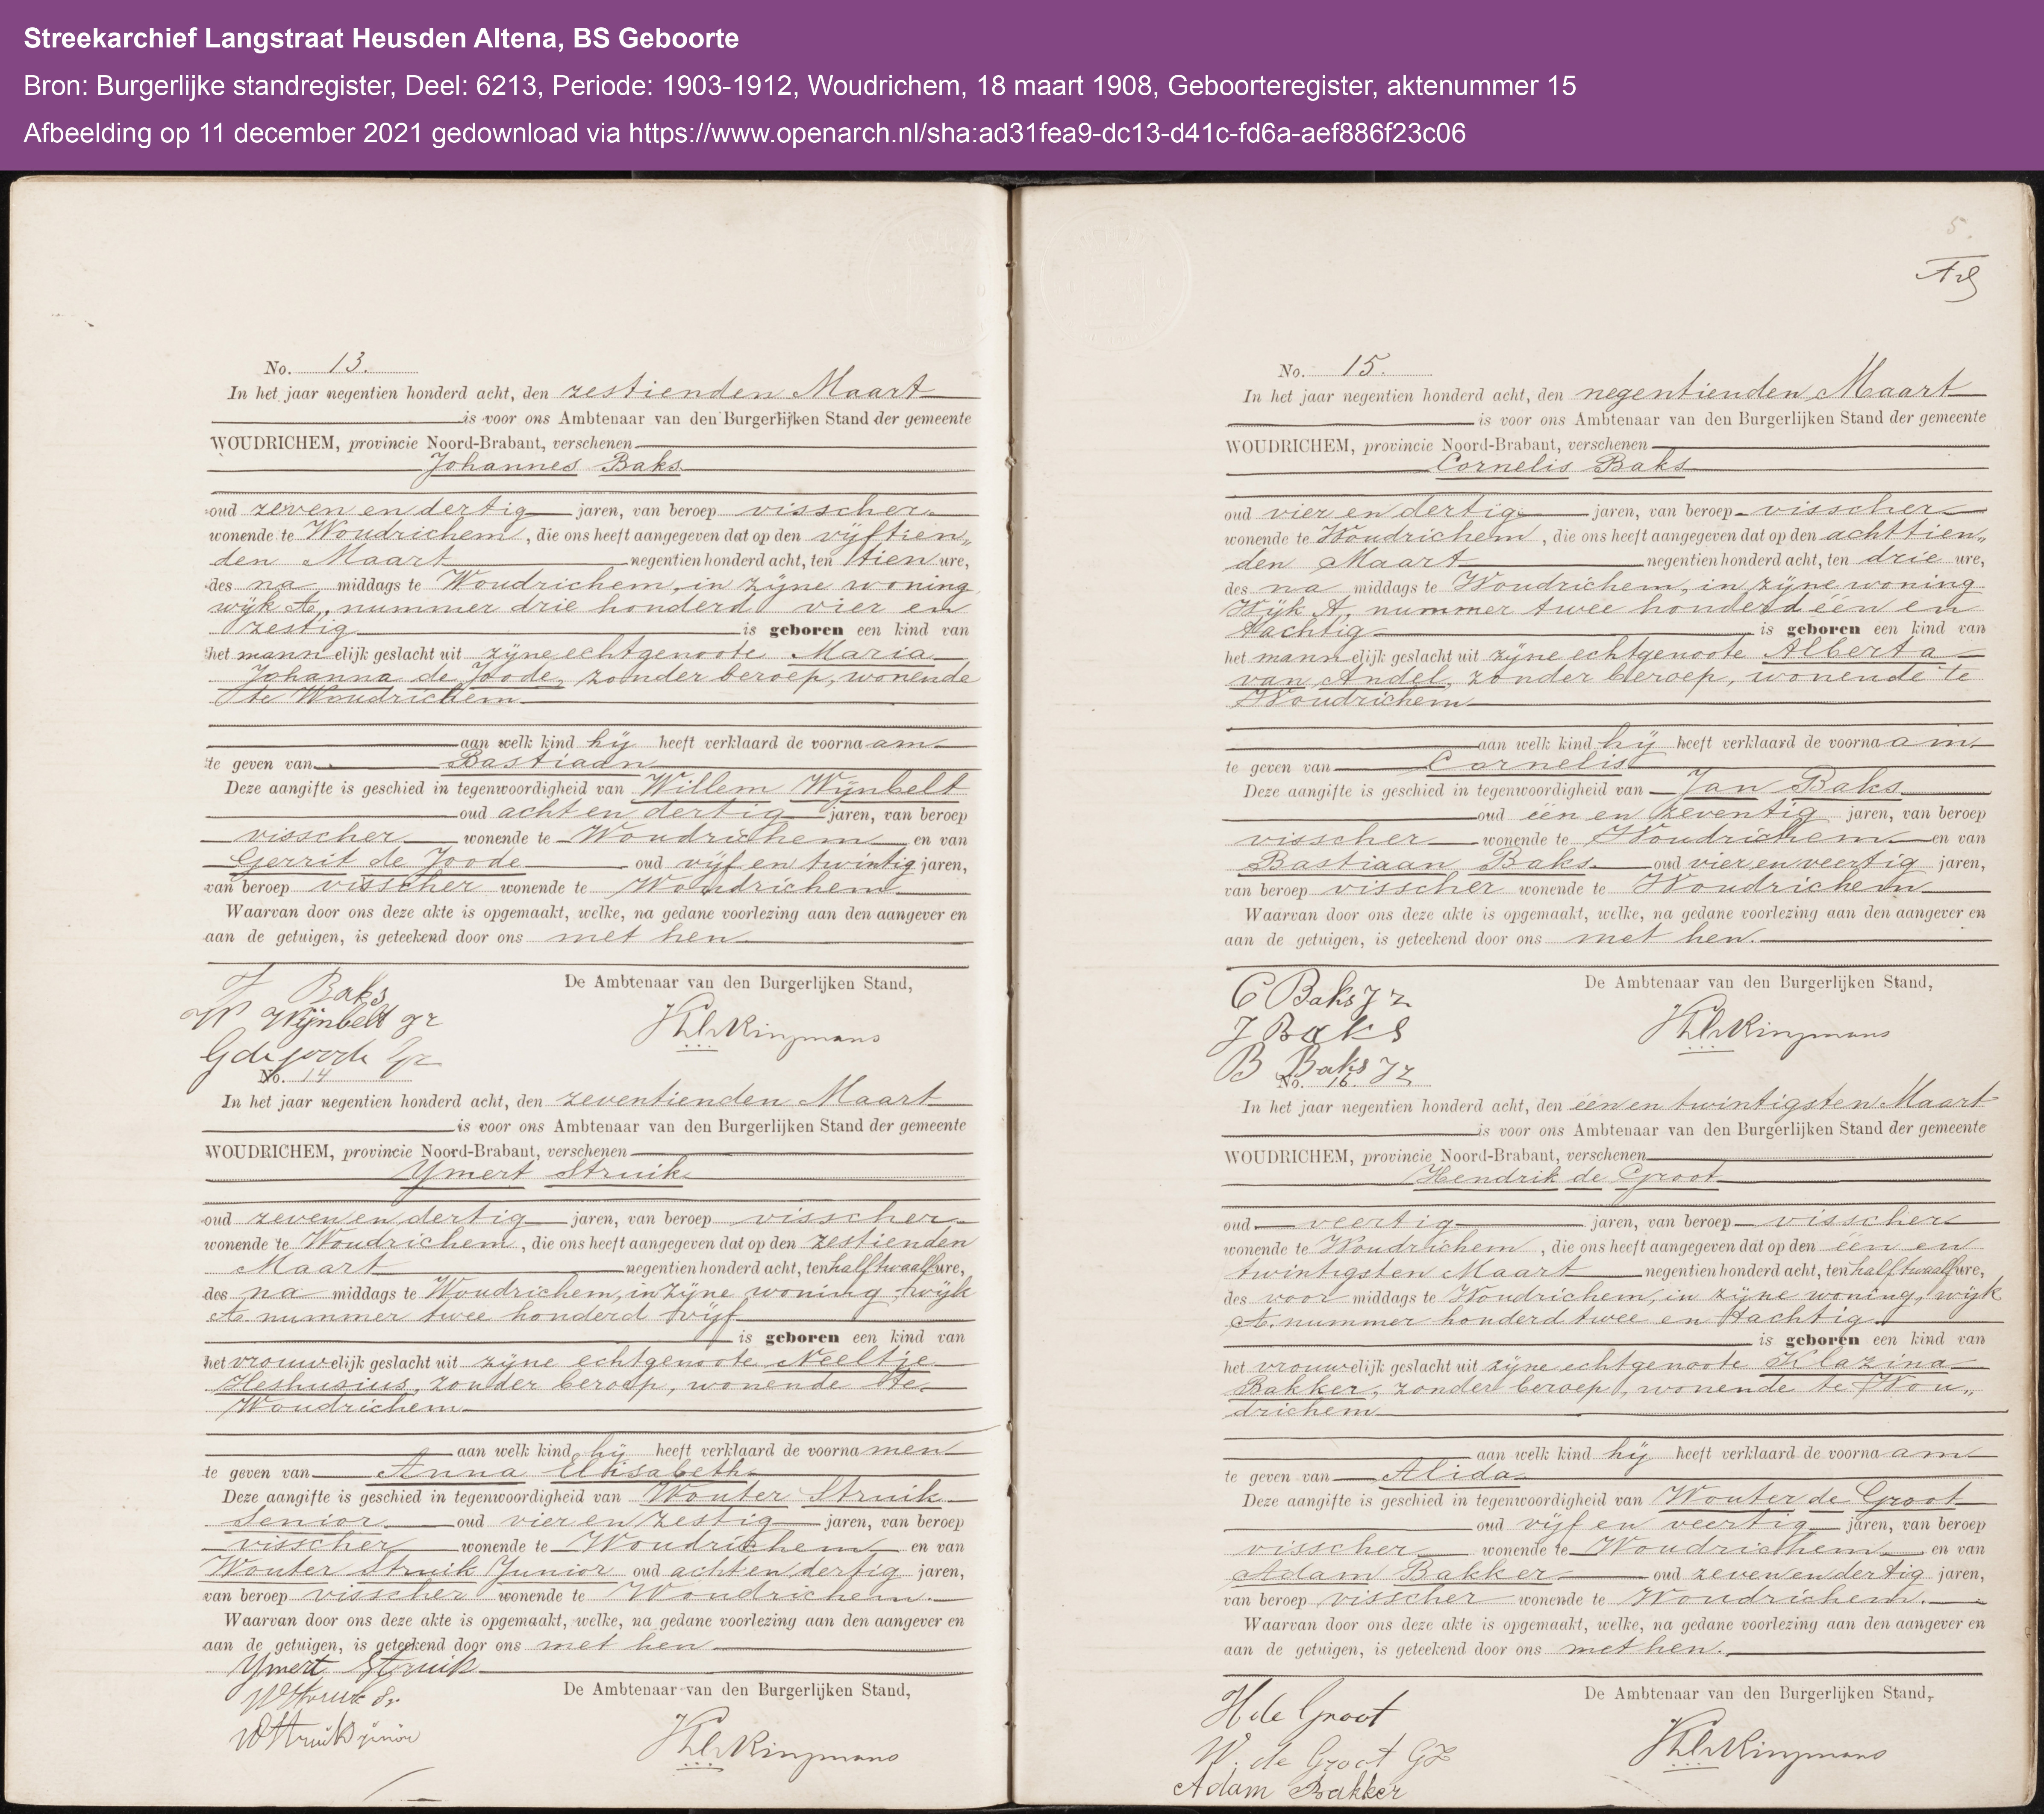 Streekarchief Langstraat Heusden Altena, BS Geboorte
Bron: Burgerlijke standregister, Deel: 6213, Periode: 1903-1912, Woudrichem, 18 maart 1908, Geboorteregister, aktenummer 15
Afbeelding op 11 december 2021 gedownload via https://www.openarch.nl/sha:ad31fea9-dc13-d41c-fd6a-aef886f23c06
No. 13.
In het jaar negentien honderd acht, den zestienden Maart
is voor ons Ambtenaar van den Burgerlijken Stand der gemeente
WOUDRICHEM, provincie Noord-Brabant, verschenen
Johannes Baks
oud zeven en dertig jaren, van beroep visscher
wonende te Woudrichem, die ons heeft aangegeven dat op den vijftien„
den Maart negentien honderd acht, ten tien ure,
des na middags te Woudrichem, in zijne woning
wijk A, nummer drie honderd vier en
zestig is geboren een kind van
het mannelijk geslacht uit zijne echtgenoote Maria
Johanna de Joode, zonder beroep, wonende
te Woudrichem
aan welk kind hij heeft verklaard de voornaam
te geven van Bastiaan
Deze aangifte is geschied in tegenwoordigheid van Willem Wijnbelt
oud acht en dertig jaren, van beroep
visscher wonende te Woudrichem en van
Gerrit de Joode oud vijf en twintig jaren,
van beroep visscher wonende te Woudrichem
Waarvan door ons deze akte is opgemaakt, welke, na gedane voorlezing aan den aangever en
aan de getuigen, is geteekend door ons met hen
De Ambtenaar van den Burgerlijken Stand,
Baks
W Wijnbelt
G de joode
No. 14
In het jaar negentien honderd acht, den zeventienden Maart
is voor ons Ambtenaar van den Burgerlijken Stand der gemeente
WOUDRICHEM, provincie Noord-Brabant, verschenen
Ymert Struik
oud zeven en dertig jaren, van beroep visscher
wonende te Woudrichem, die ons heeft aangegeven dat op den zestienden
Maart negentien honderd acht, ten half twaalf ure,
des na middags te Woudrichem, in zijne woning, wijk
A. nummer twee honderd vijf
is geboren een kind van
het vrouwelijk geslacht uit zijne echtgenoote Neeltje
Heshusius, zonder beroep, wonende te
Woudrichem
aan welk kind hij heeft verklaard de voornamen
te geven van Anna Elisabeth
Deze aangifte is geschied in tegenwoordigheid van Wouter Struik
Senior oud vier en zestig jaren, van beroep
visscher wonende te Woudrichem en van
Wouter Struik Junior oud acht en dertig jaren,
van beroep visscher wonende te Woudrichem.
Waarvan door ons deze akte is opgemaakt, welke, na gedane voorlezing aan den aangever en
aan de getuigen, is geteekend door ons met hen
Ymert Struik
De Ambtenaar van den Burgerlijken Stand,
W Struik Sr
W Struik junior
5.
No. 15.
In het jaar negentien honderd acht, den negentienden Maart
is voor ons Ambtenaar van den Burgerlijken Stand der gemeente
WOUDRICHEM, provincie Noord-Brabant, verschenen
Cornelis Baks
oud vier en dertig jaren, van beroep visscher
wonende te Woudrichem, die ons heeft aangegeven dat op den achttien„
den Maart negentien honderd acht, ten drie ure,
des na middags te Woudrichem, in zijne woning
Wijk A, nummer twee honderd één en
tachtig is geboren een kind van
het mannelijk geslacht uit zijne echtgenoote Alberta
van Andel, zonder beroep, wonende te
Woudrichem
aan welk kind hij heeft verklaard de voornaam
te geven van Cornelis
Deze aangifte is geschied in tegenwoordigheid van Jan Baks
oud één en zeventig jaren, van beroep
visscher wonende te Woudrichem en van
Bastiaan Baks oud vier en veertig jaren,
van beroep visscher wonende te Woudrichem
Waarvan door ons deze akte is opgemaakt, welke, na gedane voorlezing aan den aangever en
aan de getuigen, is geteekend door ons met hen.
De Ambtenaar van den Burgerlijken Stand,
C Baks Jz
J Baks
B Baks Jz
No. 16.
In het jaar negentien honderd acht, den één en twintigsten Maart
is voor ons Ambtenaar van den Burgerlijken Stand der gemeente
WOUDRICHEM, provincie Noord-Brabant, verschenen
Hendrik de Groot
oud veertig jaren, van beroep visscher
wonende te Woudrichem, die ons heeft aangegeven dat op den één en
twintigsten Maart negentien honderd acht, ten half twaalf ure,
des voor middags te Woudrichem, in zijne woning, wijk
A. nummer honderd twee en tachtig
is geboren een kind van
het vrouwelijk geslacht uit zijne echtgenoote Klazina
Bakker, zonder beroep, wonende te Wou„
drichem
aan welk kind hij heeft verklaard de voornaam
te geven van Alida
Deze aangifte is geschied in tegenwoordigheid van Wouter de Groot
oud vijf en veertig jaren, van beroep
visscher wonende te Woudrichem en van
Adam Bakker oud zeven en dertig jaren,
van beroep visscher wonende te Woudrichem.
Waarvan door ons deze akte is opgemaakt, welke, na gedane voorlezing aan den aangever en
aan de getuigen, is geteekend door ons met hen.
De Ambtenaar van den Burgerlijken Stand,
H de Groot
W. de Groot GZ
Adam Bakker